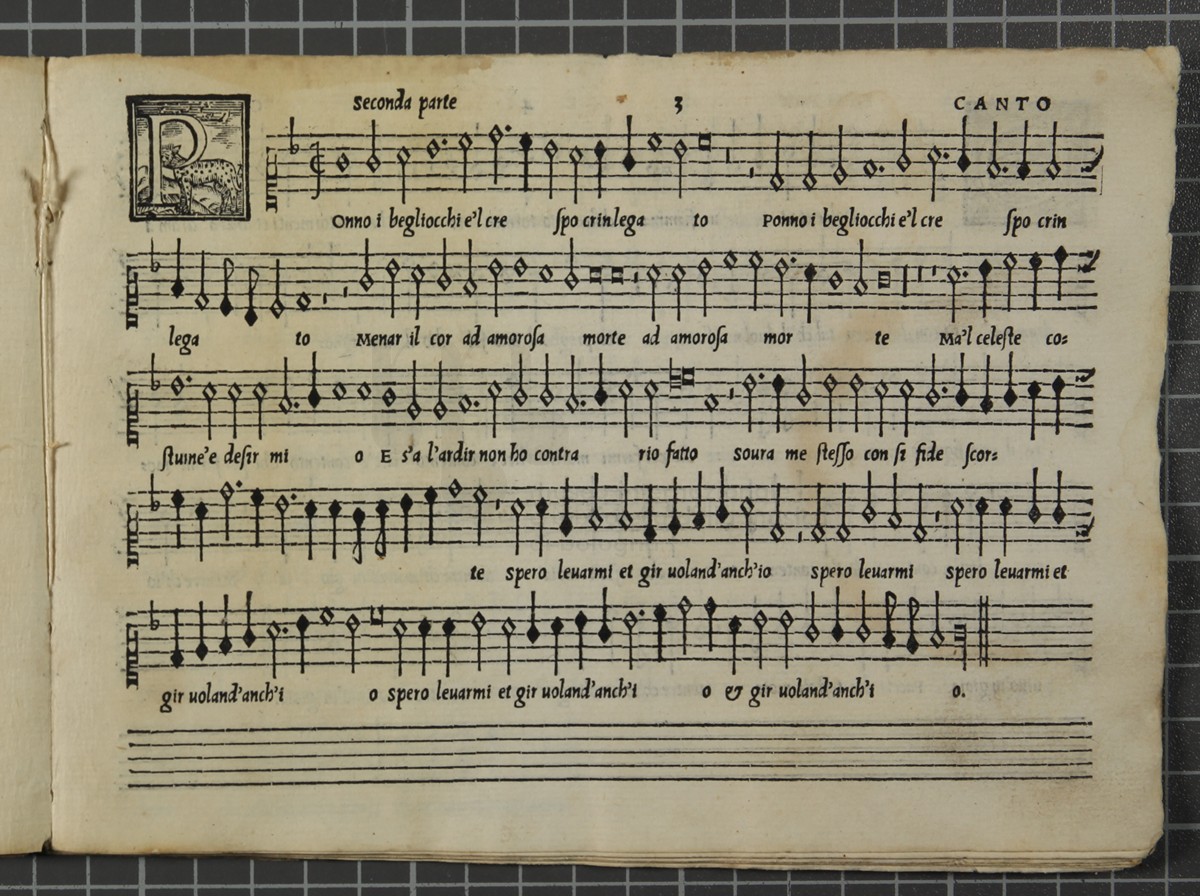 Seconda parte 3 CANTO
P Onno i begliocchi e'l cre ſpo crin lega to Ponno i begliocchi e'l cre ſpo crin
lega to Menar il cor ad amoroſa morte ad amoroſa mor te Ma'l celeſte co=
ſtume'e deſir mi o E s'a l'ardir non ho contra rio fatto Soura me ſteſſo con ſi fide ſcor=
te spero leuarmi et gir uoland'anch'io spero leuarmi spero leuarmi et
gir uoland'anch'i o spero leuarmi et gir uoland'anch'i o & gir uoland'anch'i o.